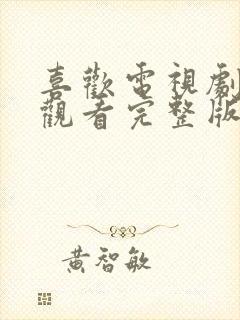 喜歡電視劇
觀看完整版
黃智敏